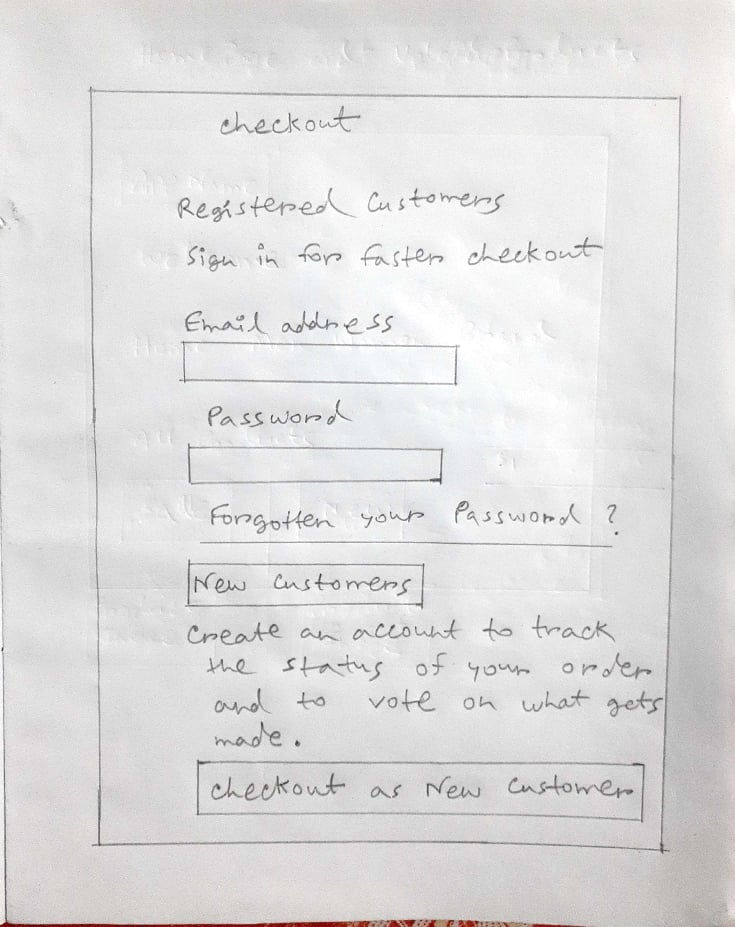 checkout
Registered Customers
Sign in for faster checkout
Email address
Password
Forgotten your Password ?
New Customers
Create an account to track
the status of your order
and to vote on what gets
made.
checkout as New Customer